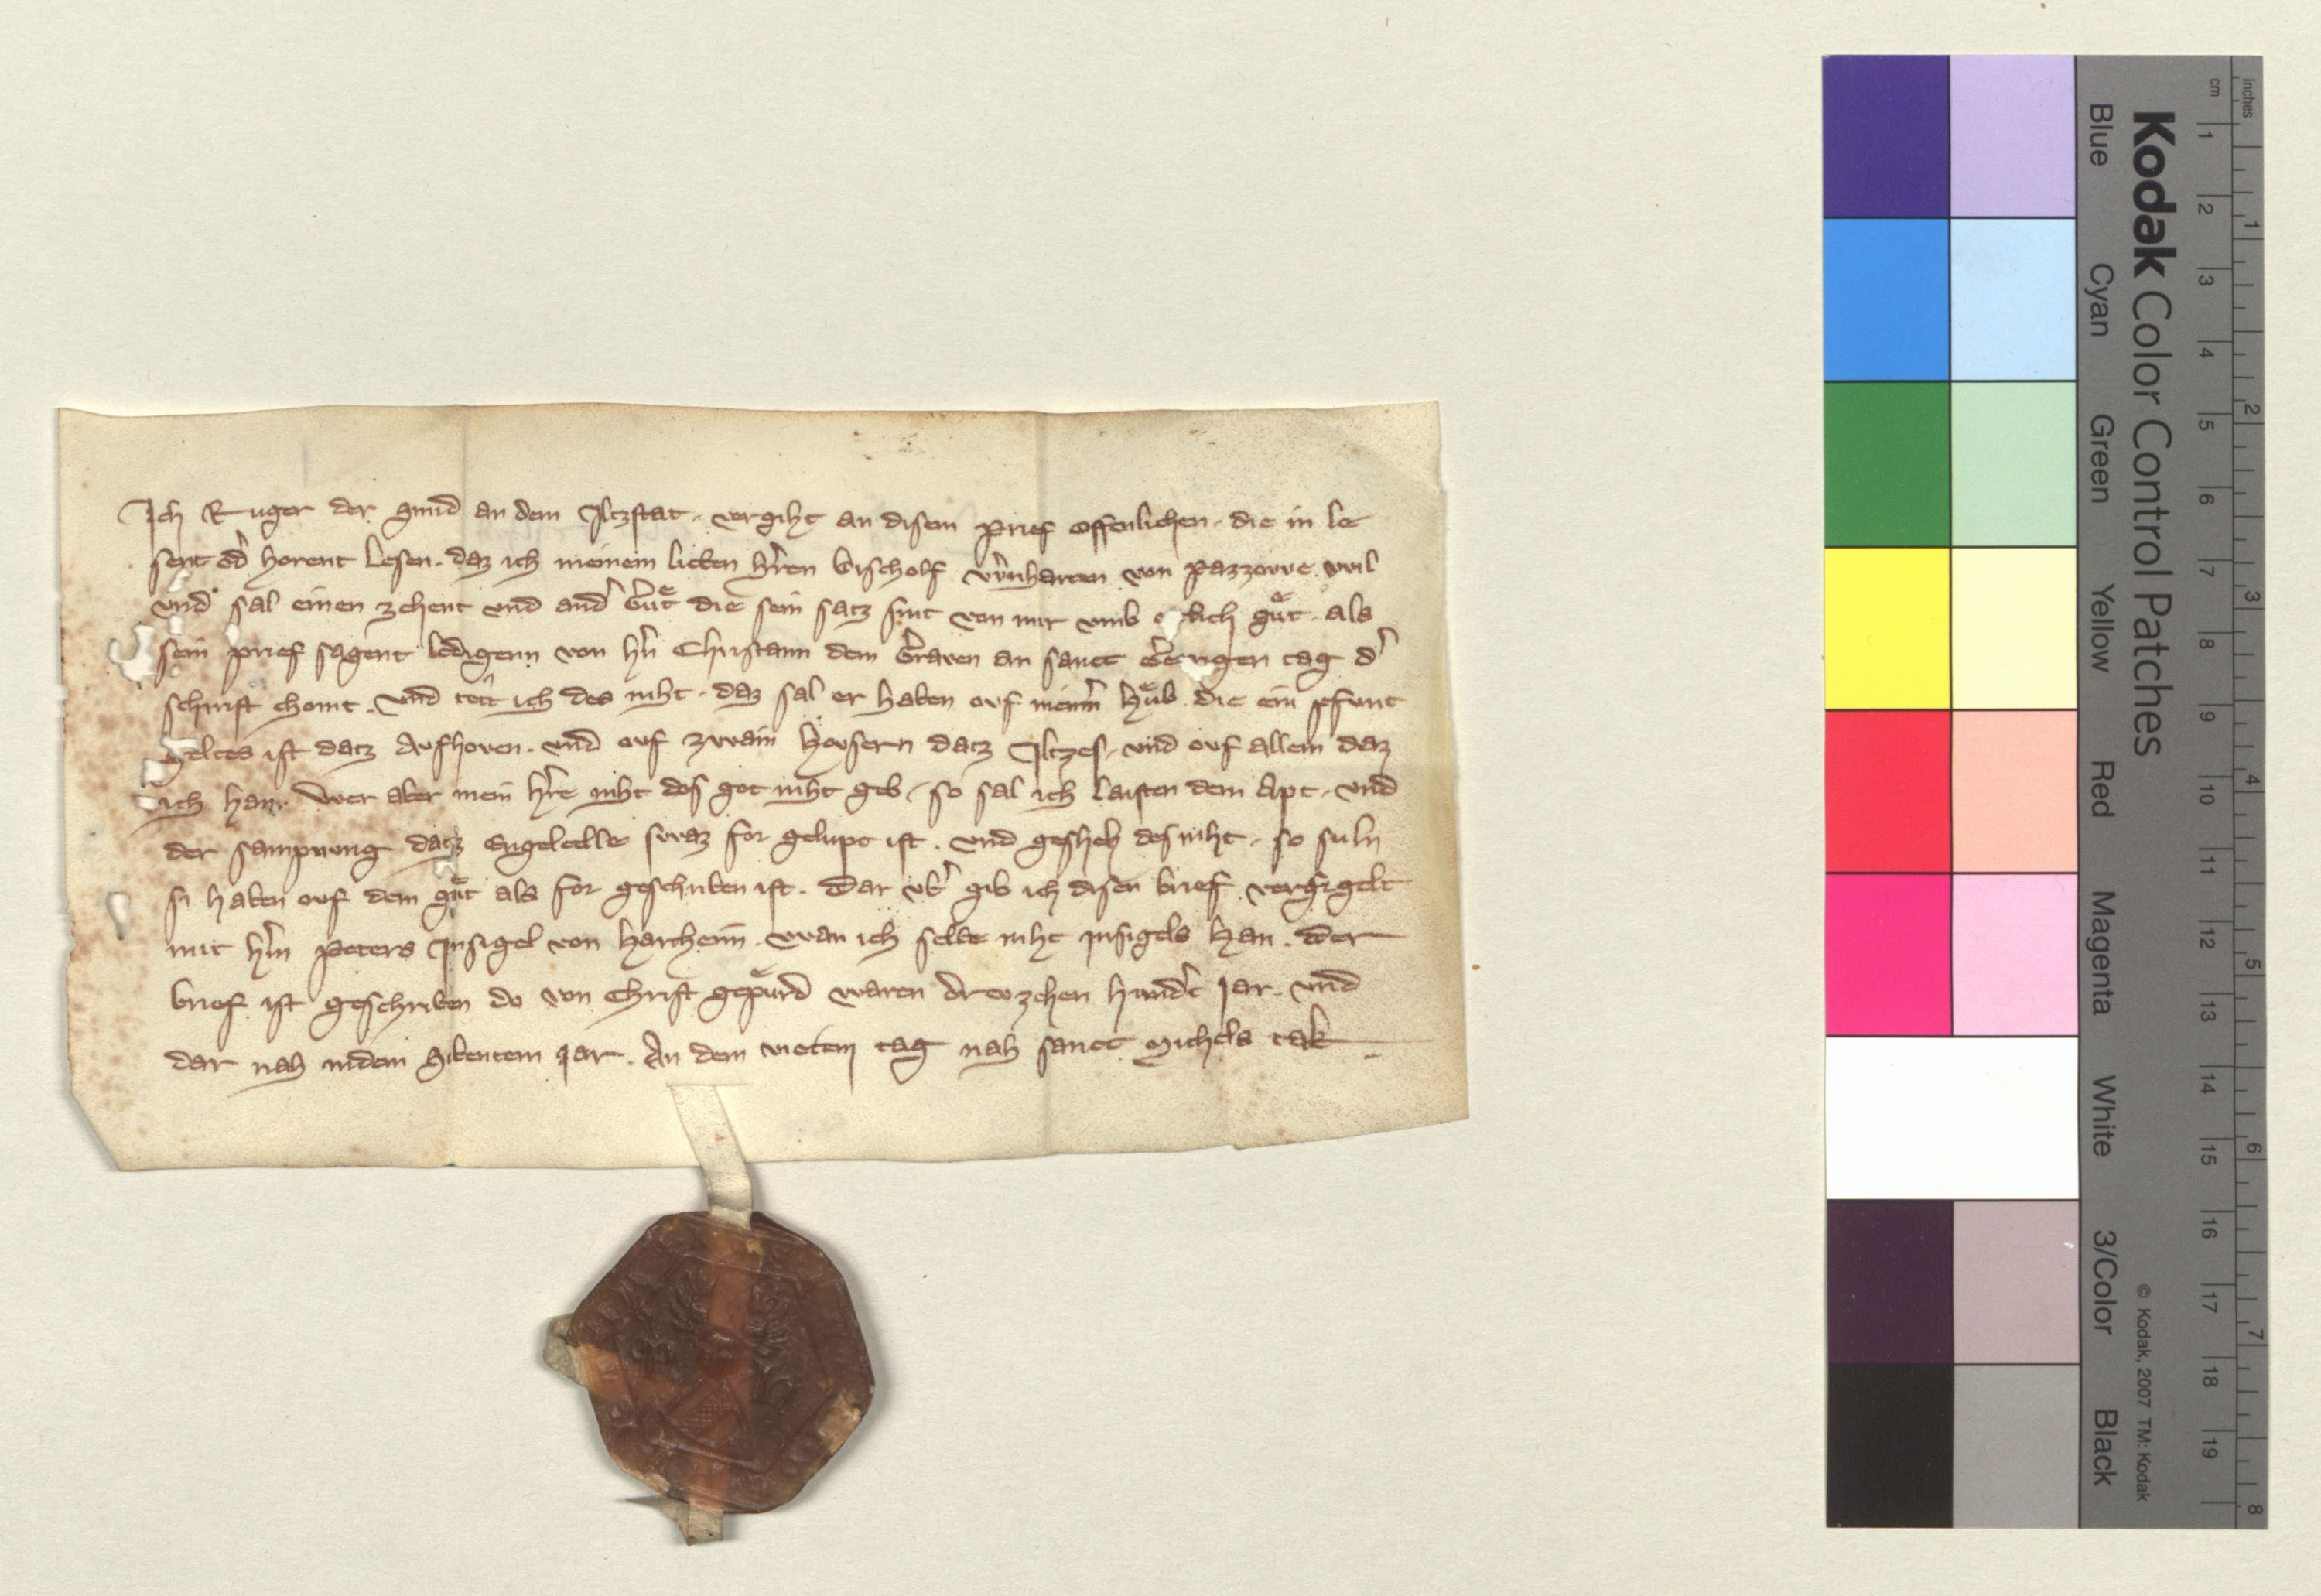 Ich Ruger der smid an dem Iltzstat. vergiht an disem prief offenlichen. die in le
sent od̾ horent lesen. daz ich meinem lieben h̾ren bischolf w̾rnharten von pazzowe wil
vnd sal einen zehent vnd and̾ guͤt die sein satz sint von mir vmb guͤt. als
sein prief sagent ledigenn von h̾n Christann dem Graven an sanct tag d̾
schirst chomt. vnd ich des niht. daz sal er haben ouf hůb die ein
geltes ist datz Aufhouen. vnd ouf zwain housern datz Iltzes. vnd ouf allem daz
ich han. wer aber mein h̾re niht des got niht geb. so sal ich laisten dem Apt. vnd
der sampnung datz Engelcelle swaz for gelupt ist. vnd gescheh des niht. so suln
si haben ouf dem guͤt als for geschriben ist. Dar vb̾ gib ich disen brief versigelt
mit h̾n Peters Insigel von Harchein. wan ich selbe niht Insigels han. Der
brief ist geschriben do von Christ gepuͤrd waren drevzehen hund̾t jar. vnd
dar nah indem sibentem jar. An dem tag nah sanct Michels tak
Kodak Color Control Patches
Blue Cyan Green Yellow Red Magenta White 3/Color Black
© Kodak, 2007 TM: Kodak
cm 1 2 3 4 5 6 7 8 9 10 11 12 13 14 15 16 17 18 19
inches 1 2 3 4 5 6 7 8